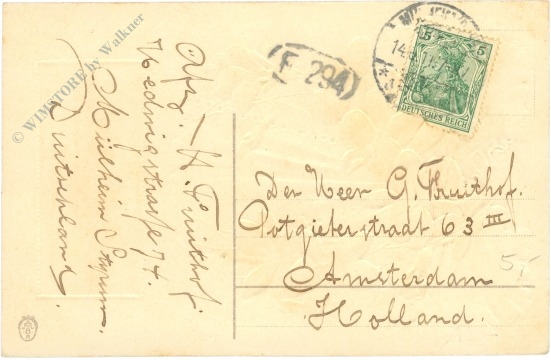 © WIMSTORE by Walkner
Afz. - H. Fruithof.
Hedwigstrasse 74.
Mülheim Styrum.
Duitschland.
F 294
MÜLHEIM
5 5
DEUTSCHES REICH
Den Heer G. Fruithof.
Potgieterstraat 63 III
Amsterdam
Holland.
5,-